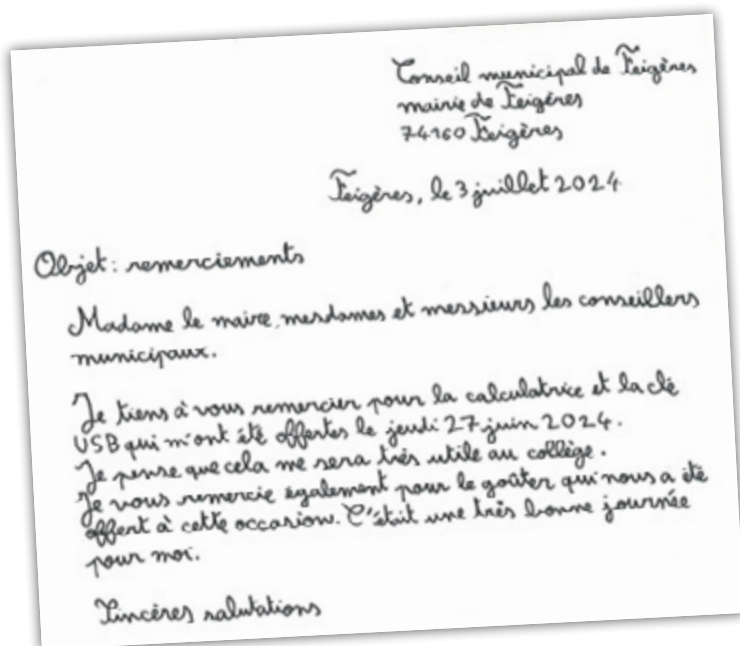 Conseil municipal de Feigères
mairie de Feigères
74160 Feigères
Feigères, le 3 juillet 2024
Objet : remerciements
Madame le maire, mesdames et messieurs les conseillers
municipaux.
Je tiens à vous remercier pour la calculatrice et la clé
USB qui m'ont été offertes le jeudi 27 juin 2024.
Je pense que cela me sera très utile au collège.
Je vous remercie également pour le goûter qui nous a été
offert à cette occasion. C'était une très bonne journée
pour moi.
Sincères salutations